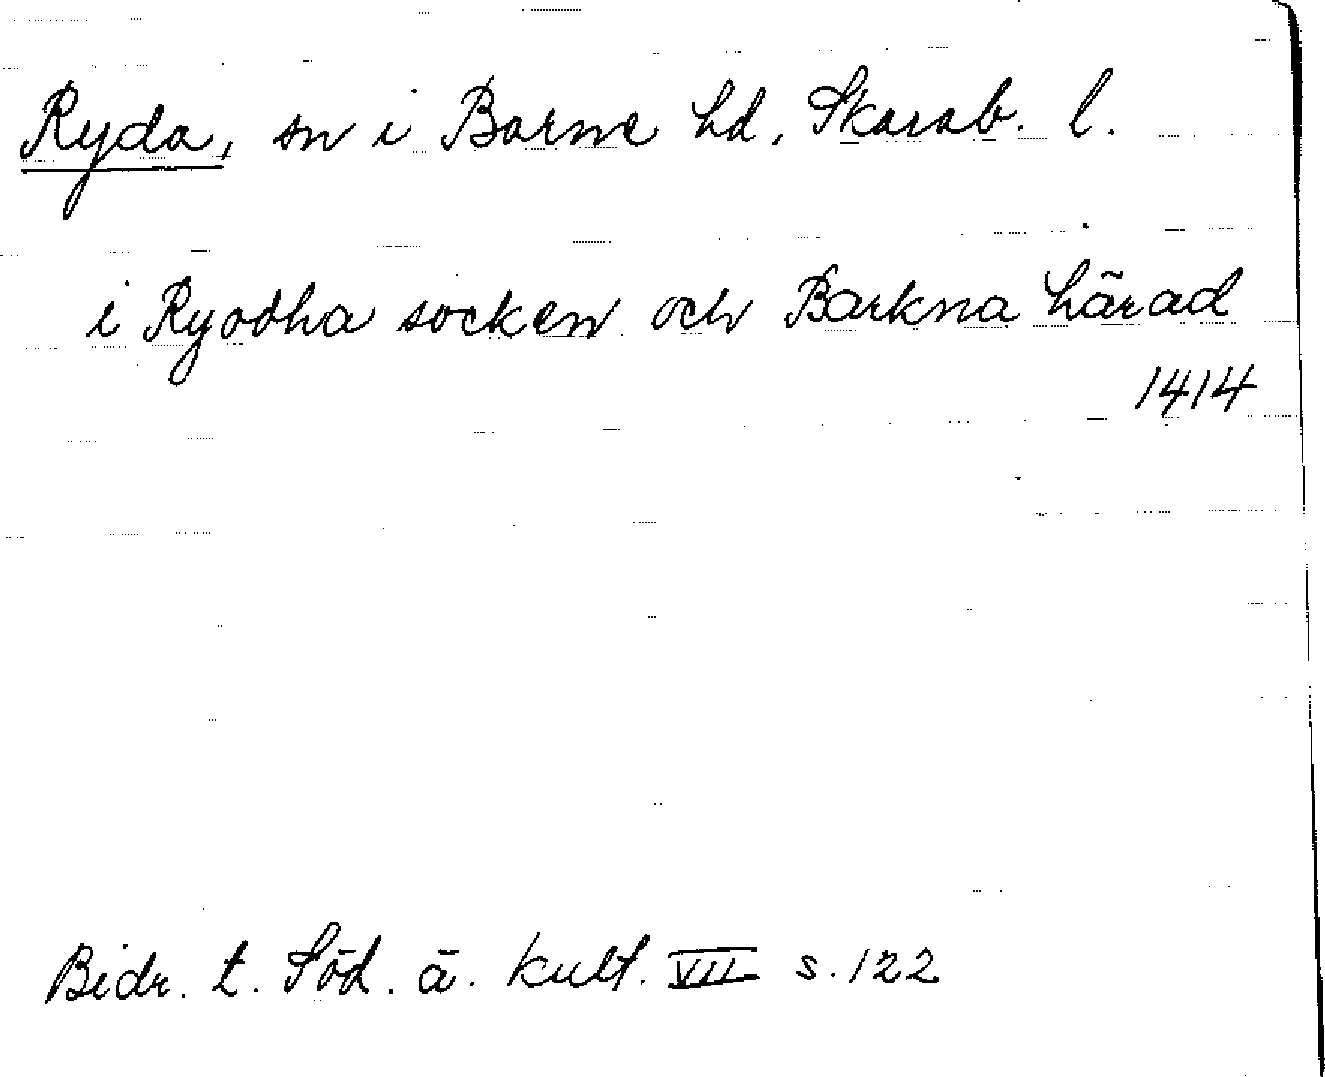 Ryda, sn i Barne hd, Skarab. l.
i Ryodha socken och Barkna härad
1414
Bidr. t. Söd. ä. kult. VII s. 122